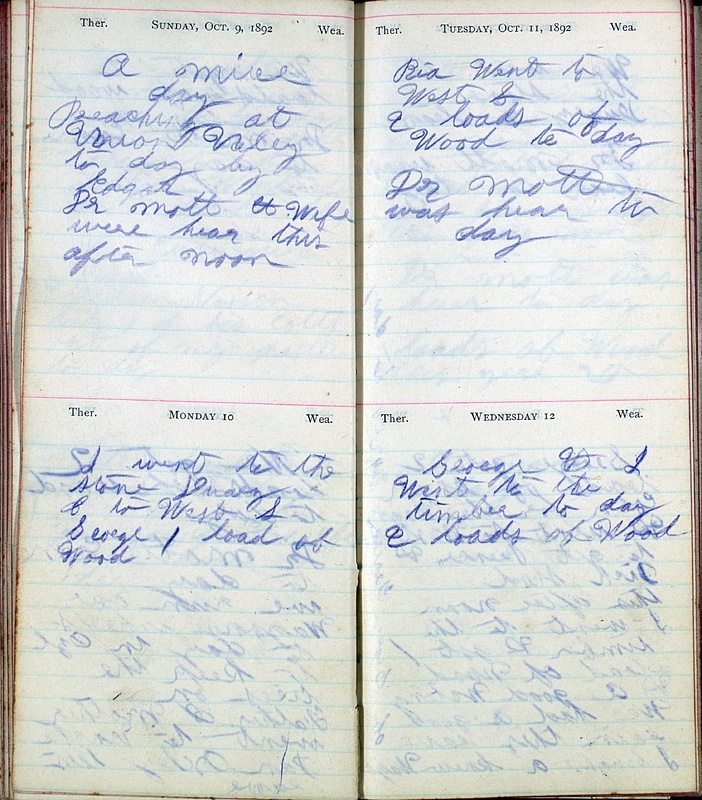 Ther. SUNDAY, OCT. 9, 1892 Wea.
A nice
day
Preaching at
Union Valley
to day by
Edgar
Dr Mott & Wife
were hear this
after noon
Ther. MONDAY 10 Wea.
I went to the
stone Quary
& to West L
George 1 load of
Wood
Ther. TUESDAY, OCT. 11, 1892 Wea.
Ria Went to
West L
2 loads of
Wood to day
Dr Mott
was hear to
day
Ther. WEDNESDAY 12 Wea.
George & I
Went to the
timber to day
2 loads of Wood